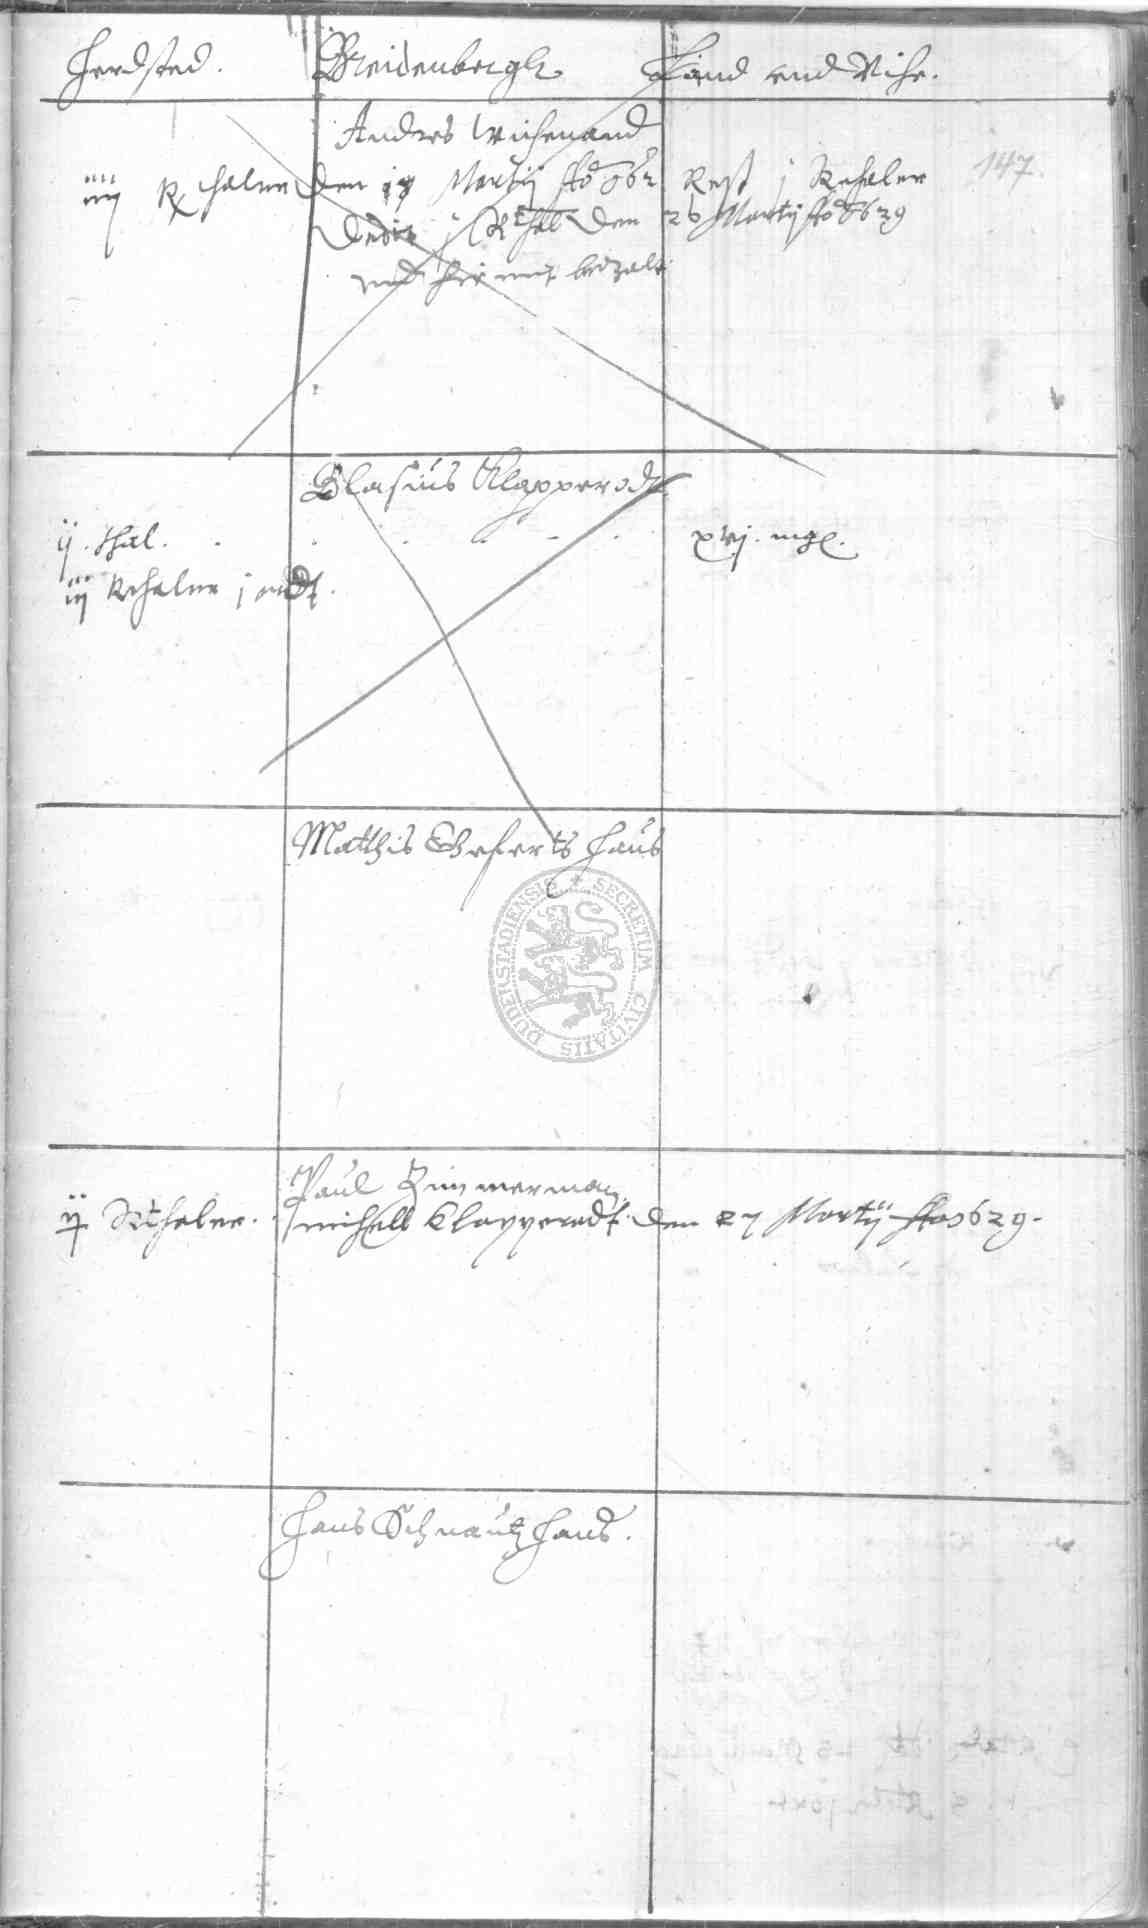 Herdsted. Breidenbergh Land und Vihe.
147.
Andres Wichenand
iiij Rx thaler den 17 Martij Ao 62 Rest j Rthaler
Dedit j Rthal den 26 Martij Ao 629
und hir mit bezalt
Blasius Klapperodt
ij. thal. . . . . . . xvj. mg.
iij Rthaler j ordt.
Matthis Eheferts Haus
DUDERSTADIENSIS SECRETUM CIVITATIS
Paul Zimmerman
ij Rthaler. michell Klapperodt den 27 Martij Ao 629.
Hans Schnautz Haus.